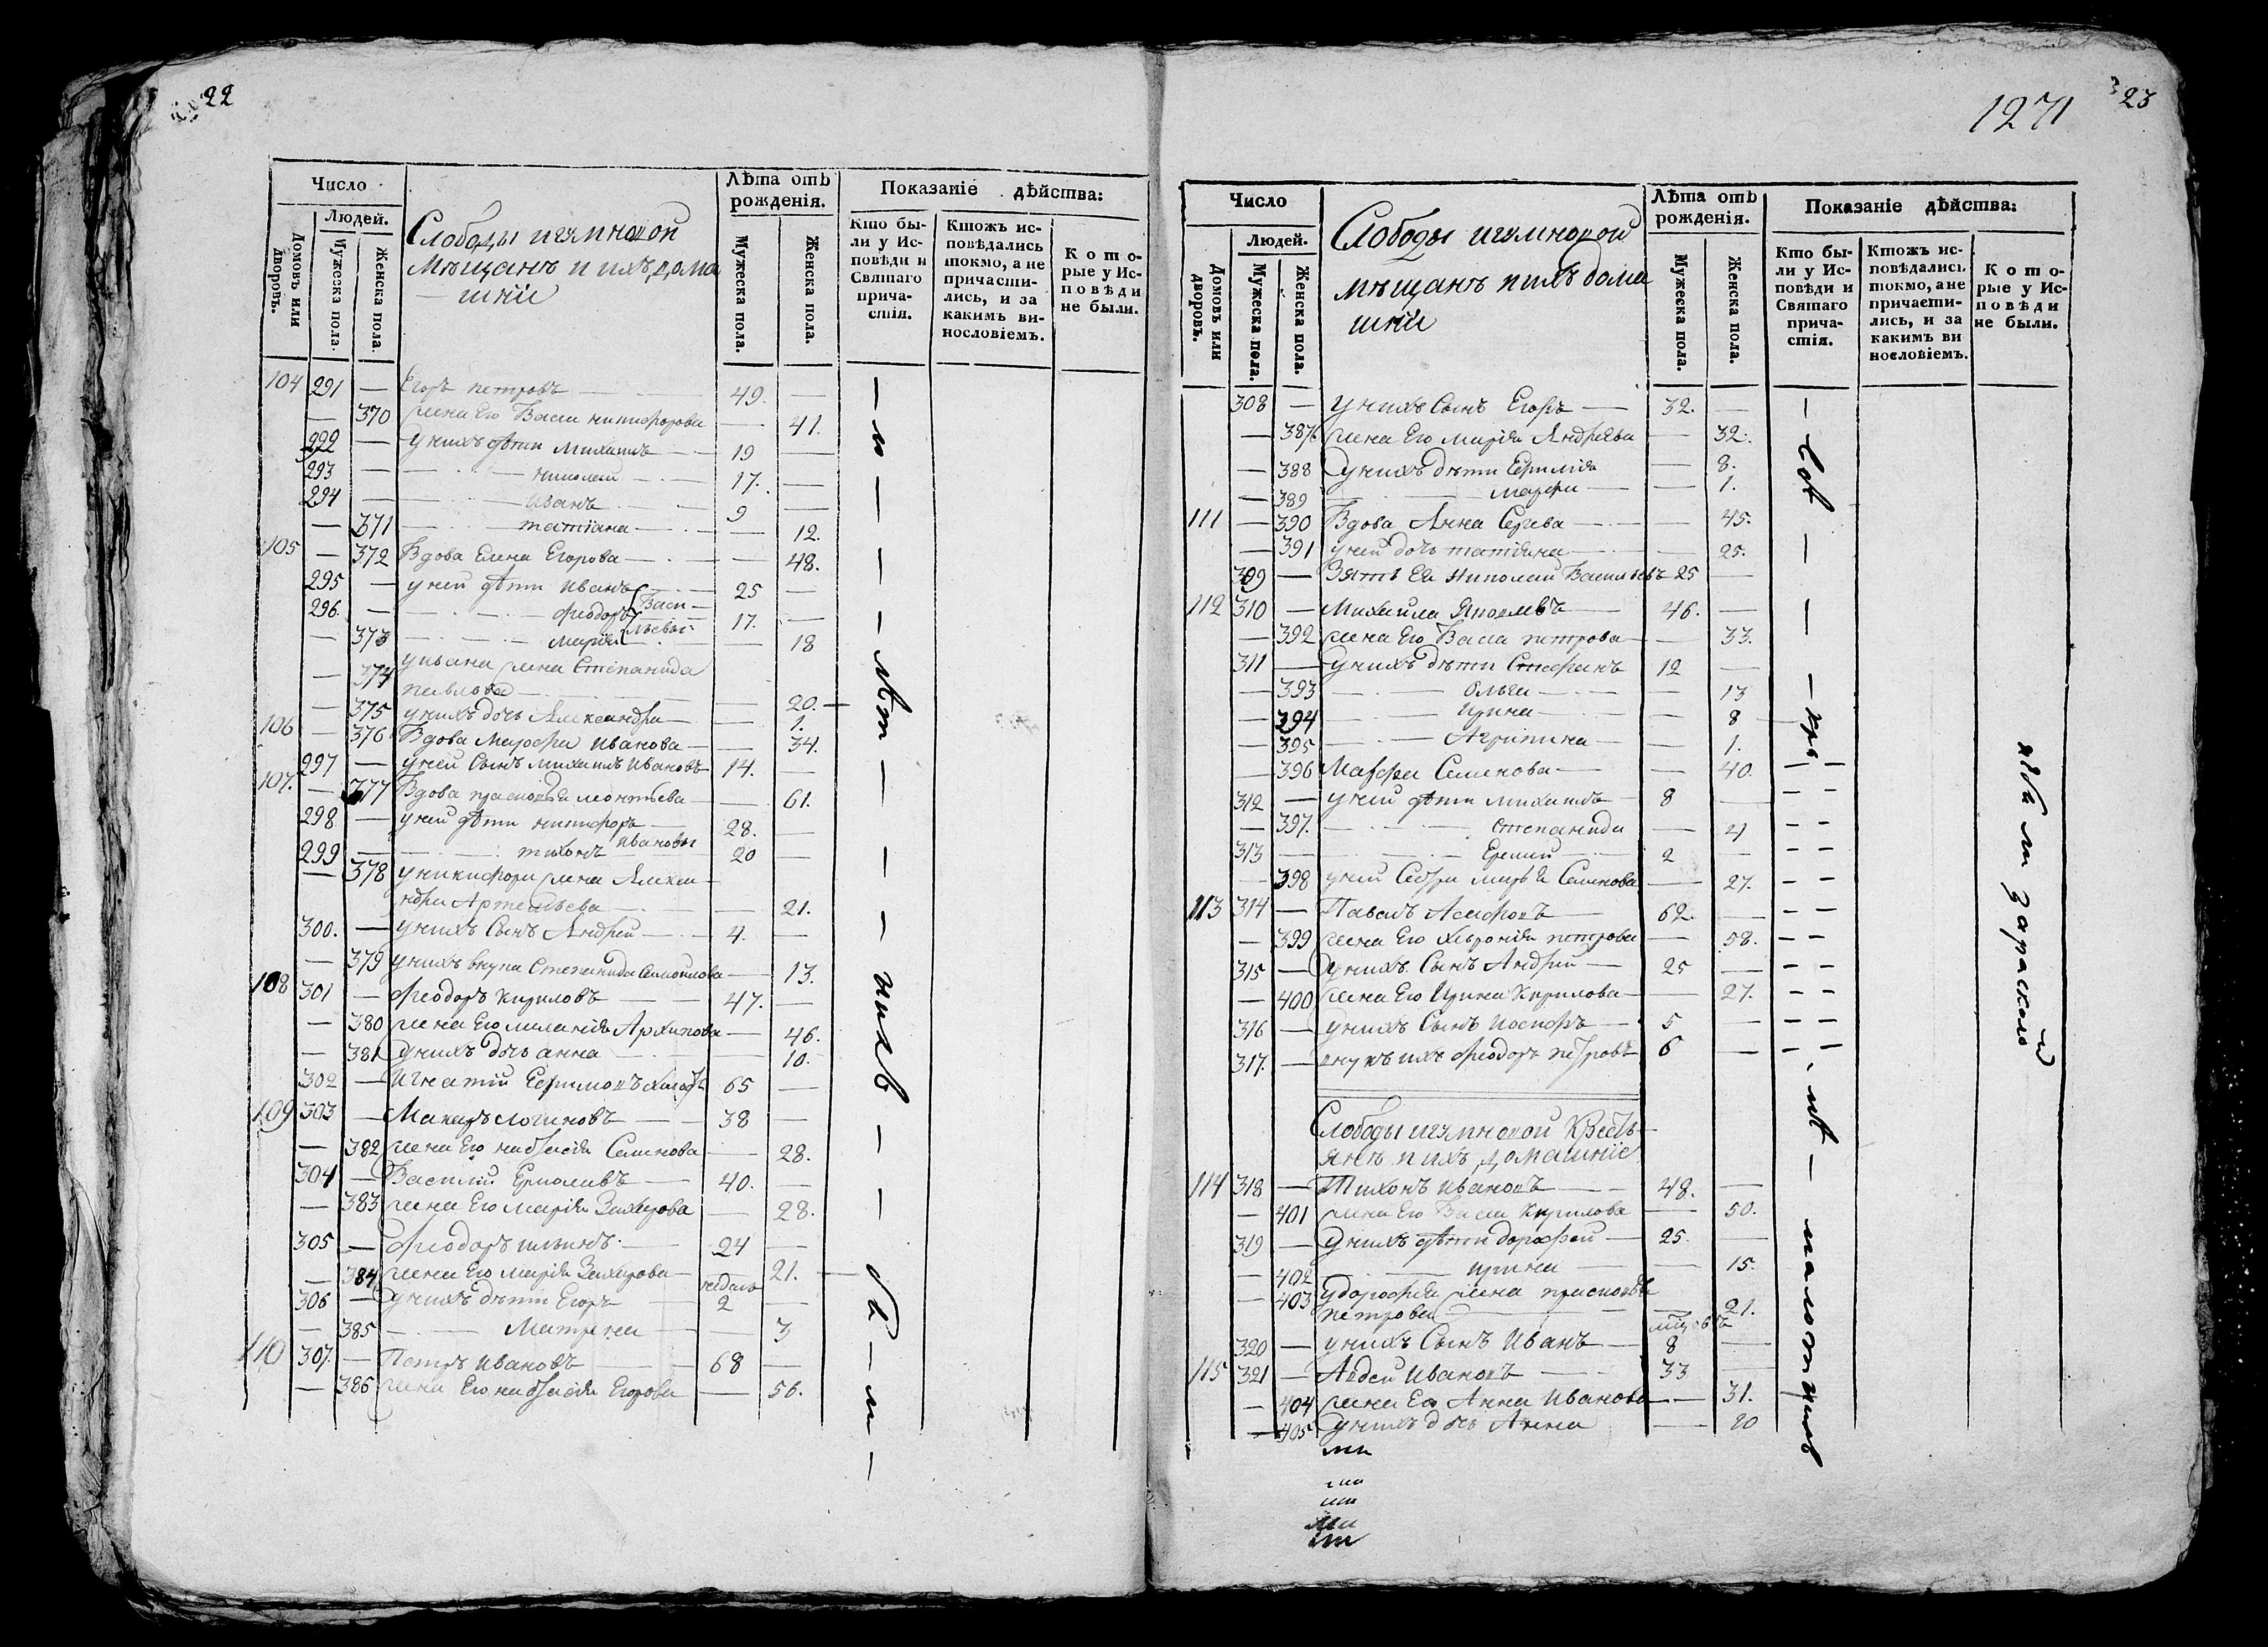 22
Число
Людей.
Домовъ или дворовъ.
Мужеска пола.
Женска пола.
Слободы игумновой
мѣщанъ и ихъ дома
шніи
Лѣта отъ рожденія.
Мужеска пола.
Женска пола.
Показаніе дѣйства:
Кто были у Исповѣди и Святаго причастія.
Ктожъ исповѣдались токмо, а не причастились, и за какимъ винословіемъ.
Которые у Исповѣди не были.
104 291 — Егоръ петровъ — 49. —
— 370 жена Его Васса никифорова — 41.
292 — у нихъ дѣти михаилъ — 19 —
293 — николай — 17. —
294 — иванъ — 9 —
— 371 — татіана — 12.
105 — 372 Вдова Елена Егорова — 48.
295 — у ней дѣти иванъ 25 —
296. — ѳеодоръ Васи- 17. —
— 373 — марія льевы — 18
— 374 у ивана жена Степанида
павлова — 20.
— 375 у нихъ дочь Александра — 1.
106 — 376 Вдова Марфа иванова — 34.
297 — у ней Сынъ михаилъ ивановъ 14. —
107. — 377 Вдова прасковья леонтьева — 61.
298 — у ней дѣти никифоръ 28. —
299 — тихонъ ивановы 20 —
— 378 у никифора жена Алекса-
ндра Артемьева — 21.
300. — у нихъ Сынъ Андрей — 4. —
— 379 у нихъ внука Степанида Самойлова — 13.
108 301 — ѳеодоръ кириловъ — 47. —
— 380 жена Его меланія Архипова — 46.
— 381 у нихъ дочь анна — 10.
302 — Игнатій Ефимовъ 65 —
109 303 — Макаръ логиновъ — 38 —
— 382 жена Его Семенова — 28.
304 — Василій Ермолаевъ — 40. —
— 383 жена Его марія Захарова — 28.
305 — ѳеодоръ ильинъ — 24 —
— 384 жена Его марія Захарова — 21.
недель
306 — у нихъ дѣти Егоръ — 2 —
— 385 — Матрена — 3
110 307. — Петръ ивановъ — 68 —
— 386 жена Его Егорова — 56.
1271
23
Число
Людей.
Домовъ или дворовъ.
Мужеска пола.
Женска пола.
Слободы игумновой
мѣщанъ и ихъ дома
шніи
Лѣта отъ рожденія.
Мужеска пола.
Женска пола.
Показаніе дѣйства:
Кто были у Исповѣди и Святаго причастія.
Ктожъ исповѣдались токмо, а не причастились, и за какимъ винословіемъ.
Которые у Исповѣди не были.
308 — у нихъ Сынъ Егоръ — 32. —
— 387 жена Его марія Андрѣева — 32.
— 388 у нихъ дѣти — 8.
— 389 — марфа — 1.
111 — 390 Вдова Анна Сергева — 45.
— 391 у ней дочь татіана — 25.
309 — Зять Ея николай Васильевъ 25 —
112 310 — Михаила Яковлевъ — 46. —
— 392 жена Его Васса петрова — 33.
311 — у нихъ дѣти Стефанъ 12 —
— 393 — Ольга — 13
— 394 — Ирина — 8
— 395 — Агрипина — 1.
— 396 Марфа Семенова — 40.
312 — у ней дѣти михаилъ 8 —
— 397. — степанида — 4
313 — Еремій — 2 —
— 398 у ней Сестра марья Семенова — 27.
113 314 — Павелъ 62. —
— 399 жена Его петрова — 58.
315 — у нихъ Сынъ Андрей — 25 —
— 400 жена Его Ирина Кирилова — 27.
316 — у нихъ Сынъ иосифъ — 5 —
317. — внукъ ихъ ѳеодоръ петровъ 6 —
Слободы игумновой Кресть-
янъ и ихъ домашніе
114 318 — Тихонъ ивановъ — 48. —
— 401 жена Его Васса Кирилова — 50.
319 — у нихъ дѣти дорофей — 25. —
— 402 — ирина — 15.
— 403 у дорофея жена прасковья
петрова — 21.
320 — у нихъ Сынъ Иванъ — 8 —
115 321 — Авдей Ивановъ — 33 —
— 404 жена Ео Анна Иванова — 31.
— 405 у нихъ дочь Анна — 20